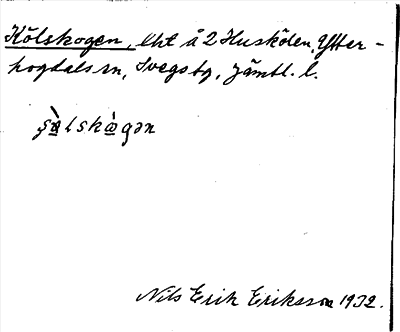 Kölskogen, lht å 2 Huskölen, Ytter-
hogdals sn, Svegs tg, Jämtl. l.
Nils Erik Eriksson 1932.